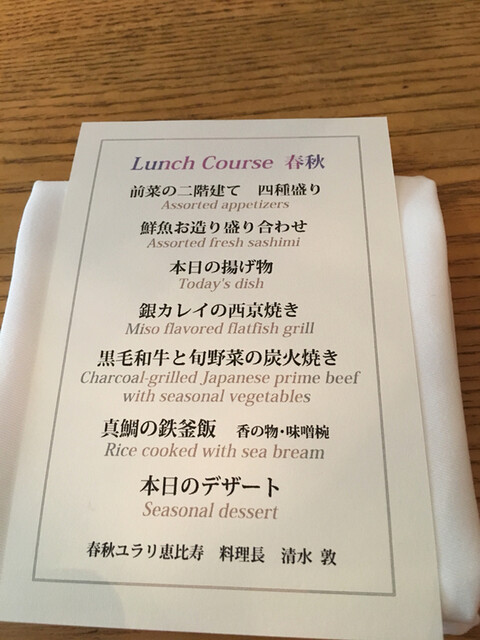 Lunch Course 春秋
前菜の二階建て 四種盛り
Assorted appetizers
鮮魚お造り盛り合わせ
Assorted fresh sashimi
本日の揚げ物
Today's dish
銀カレイの西京焼き
Miso flavored flatfish grill
黒毛和牛と旬野菜の炭火焼き
Charcoal-grilled Japanese prime beef
with seasonal vegetables
真鯛の鉄釜飯 香の物・味噌椀
Rice cooked with sea bream
本日のデザート
Seasonal dessert
春秋ユラリ恵比寿 料理長 清水 敦